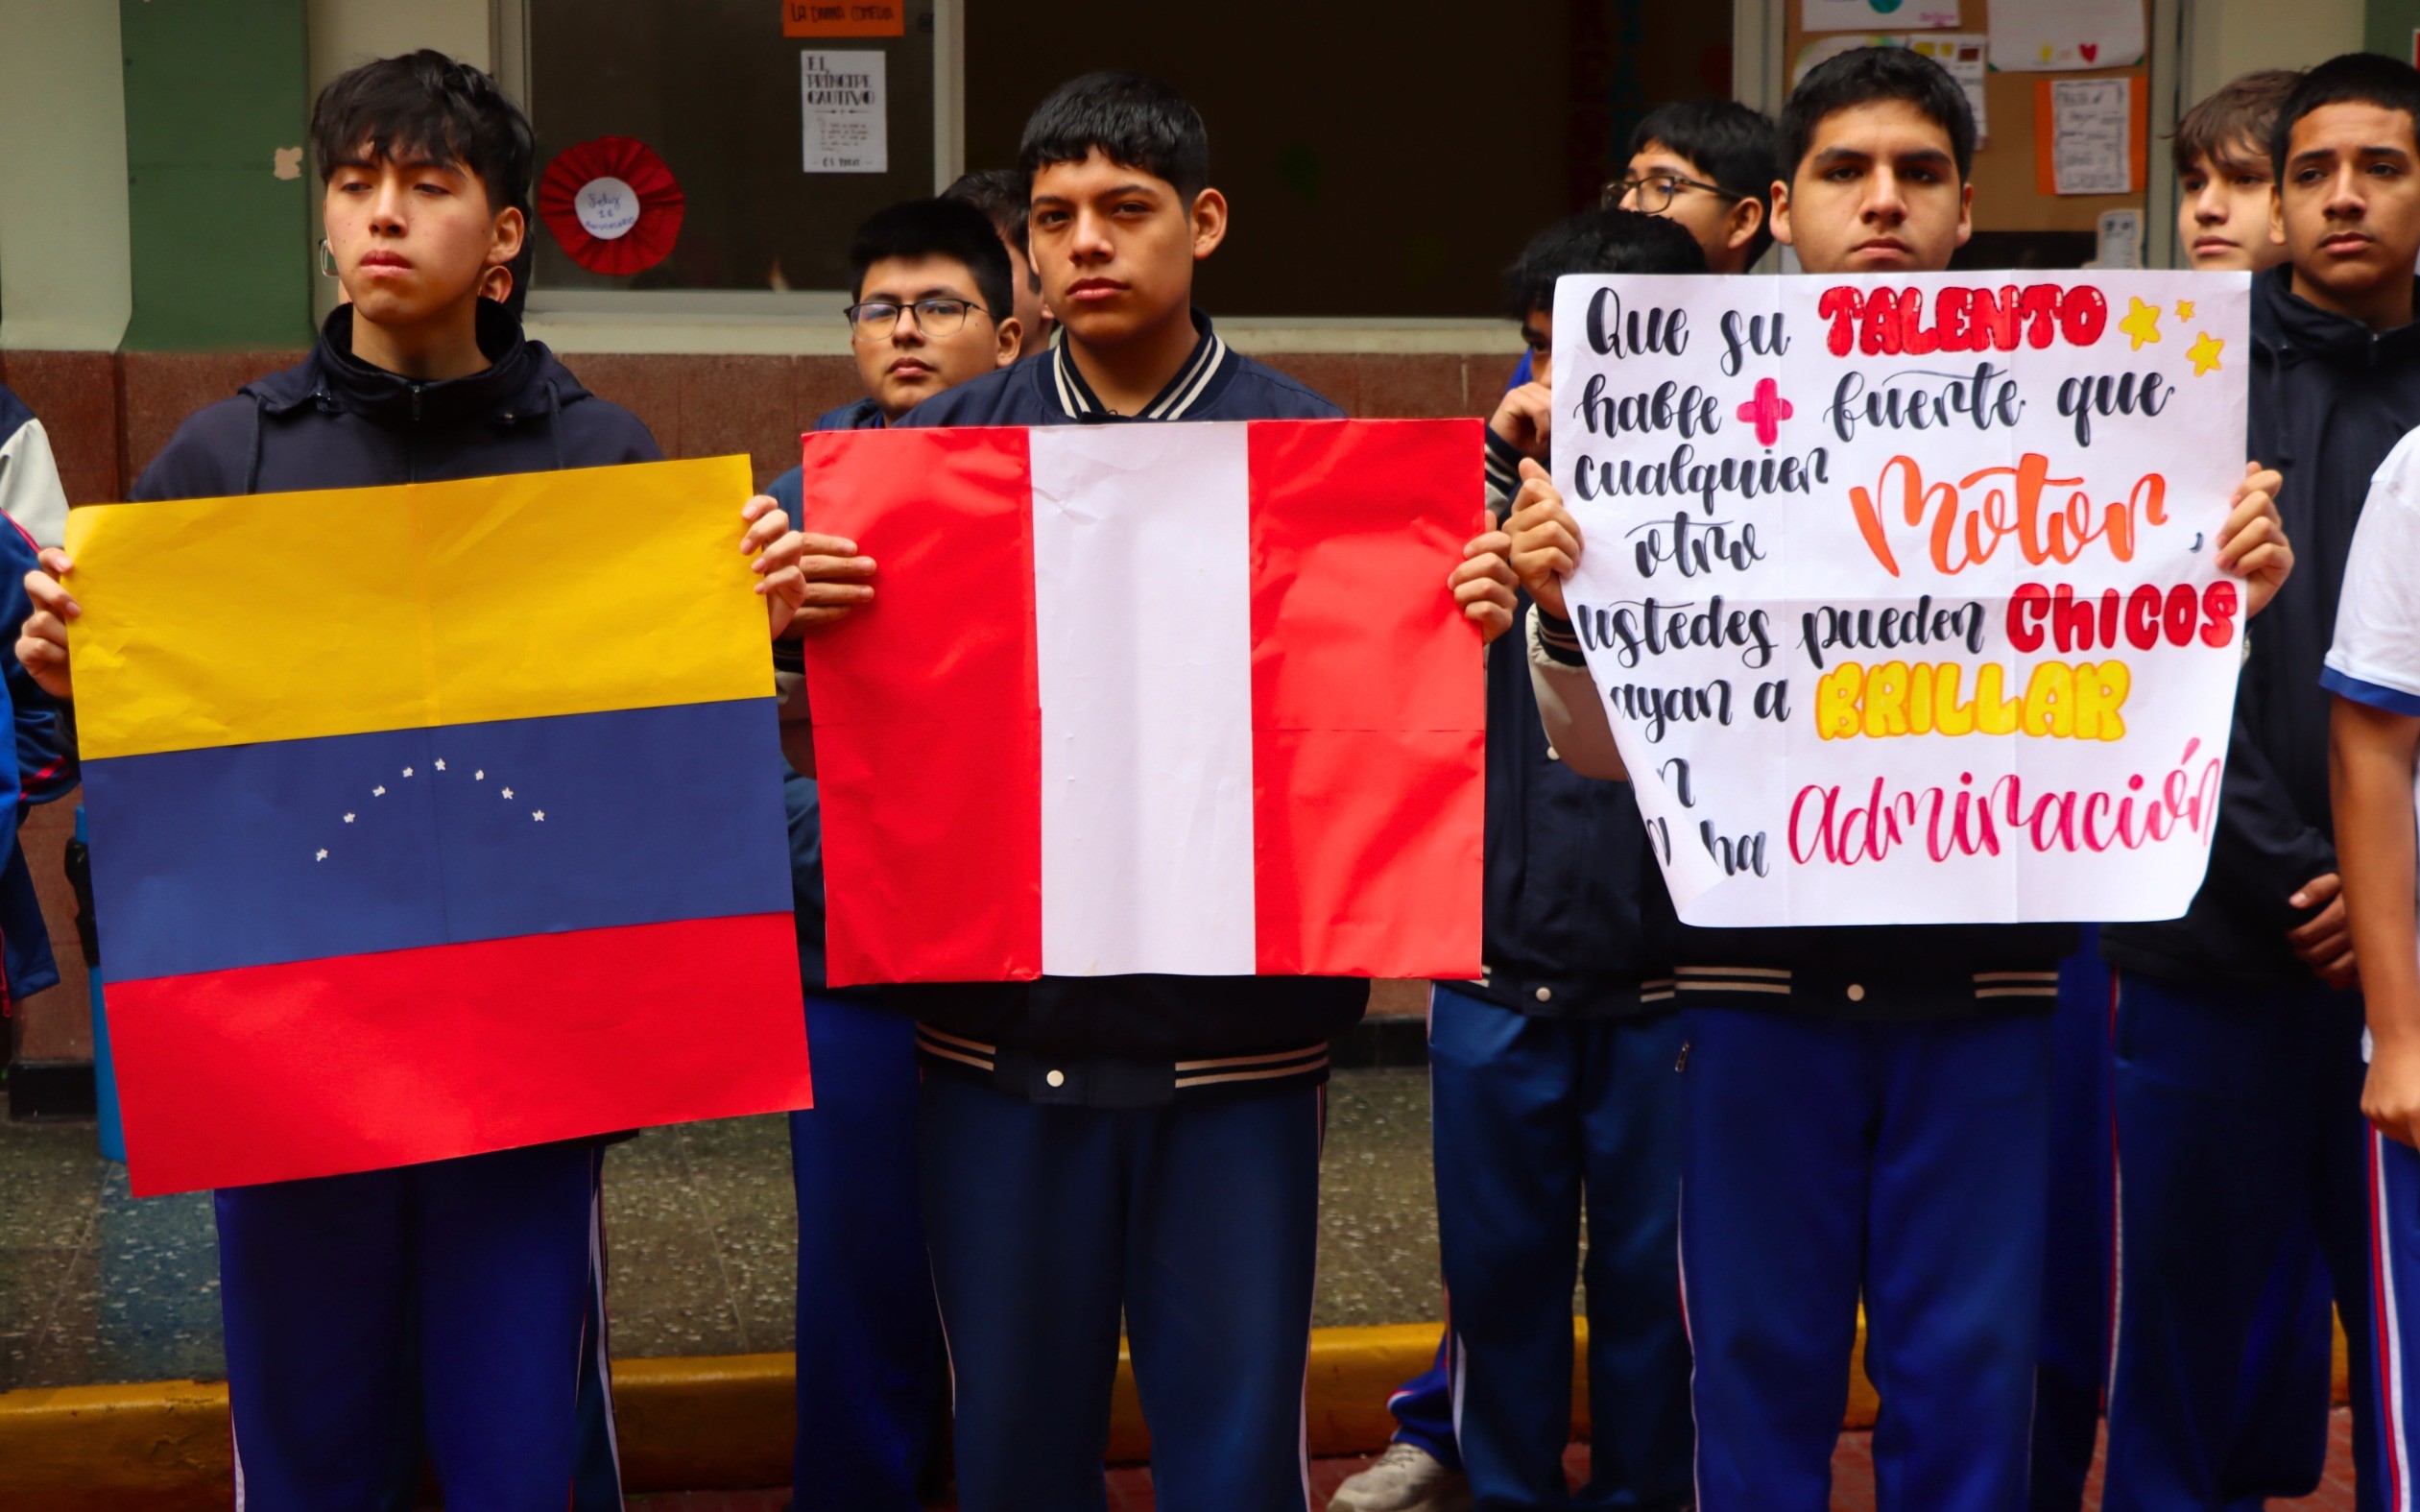 LA DIVINA COMEDIA
EL
PRÍNCIPE
CAUTIVO
Feliz
Aniversario
Que su TALENTO
hable + fuerte que
cualquier
otro Motor,
ustedes pueden CHICOS
ayan a BRILLAR
n
ha admiración